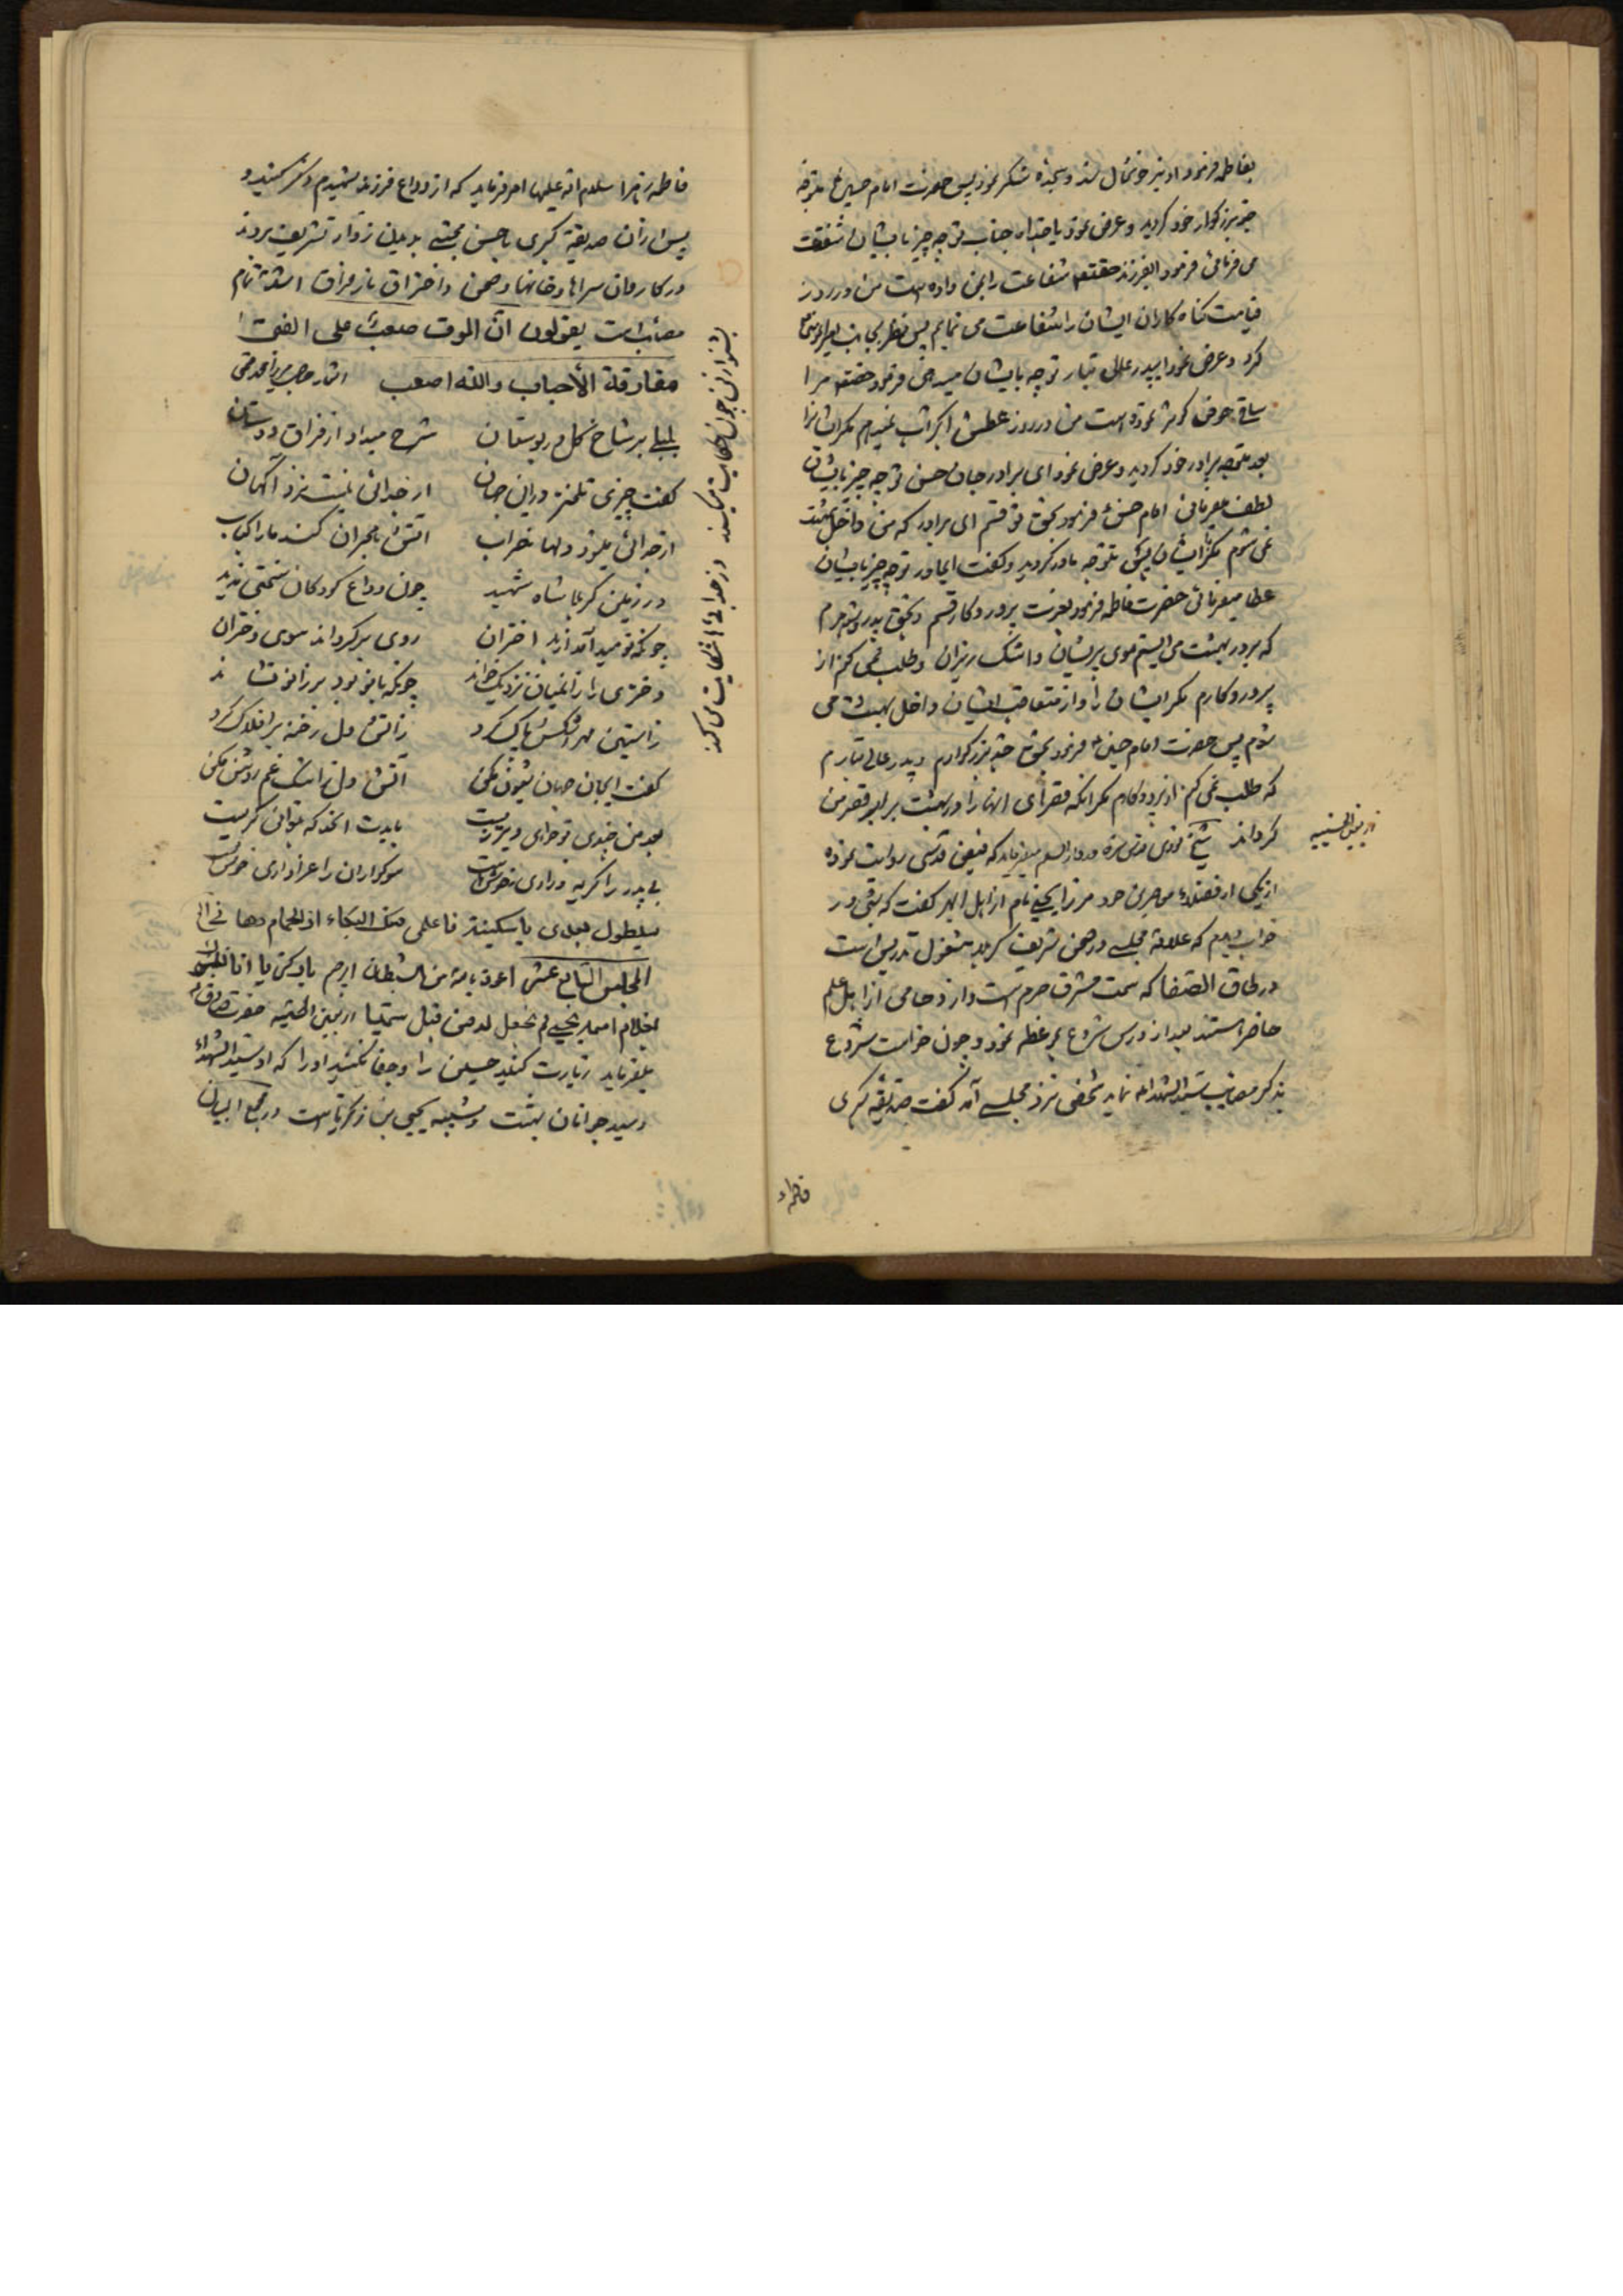 بفاطمه فرمود او نیز خوشحال شد و سجدهٔ شکر نمود پس حضرت امام حسین ع متوجه
جد بزرکوار خود کردید و عرض نمود یا جداه جناب تو چه چیز بایشان شفقت
می فرمائی فرمود ایفرزند حقتعالی شفاعت را بمن داده است من در روز
قیامت کناه کاران ایشان را شفاعت می نمایم پس نظر بجانب امیرالمؤمنین
کرد و عرض نمود ای پدر عالی تبار تو چه بایشان میدهی فرمود حقتعالی مرا
ساقی حوض کوثر نموده است من در روز عطش اکبر آب نمیدهم مکر ایشانرا
بعد متوجه برادر خود کردید و عرض نمود ای برادر جان حسن تو چه چیز بایشان
لطف میفرمائی امام حسن ع فرمود بحق تو قسم ای برادر که من داخل بهشت
نمی شوم مکر با ایشان پس متوجه مادر کردید و کفت ایمادر تو چه چیز بایشان
عطا میفرمائی حضرت فاطمه فرمود بعزت پروردکار قسم و بحق پدر و شوهرم
که بر در بهشت می ایستم موی پریشان و اشک ریزان و طلب نمی کنم از
پروردکارم مکر ایشان را و از متعاقب ایشان داخل بهشت می
شوم پس حضرت امام حسین ع فرمود بحق جد بزرکوارم و پدر عالی تبارم
که طلب نمی کنم از پروردکارم مکر آنکه قصرهای آنها را در بهشت برابر قصر من
کرداند شیخ نوری قدس سره در دارالسلم میفرماید که فیض قدسی روایت نموده
از یکی از فضلاء میرزا یحیی نام از اهل ابهر کفت که شبی در
خواب دیدم که علامهٔ مجلسی در صحن شریف کربلا مشغول تدریس است
در طاق الصفا که سمت مشرق حرم است و ازدحامی از اهل علم
حاضر استند بعد از درس شروع بموعظه نمود و چون خواست شروع
بذکر مصائب سید الشهداء نماید شخصی نزد مجلسی آمد کفت صدیقهٔ کبری
اربعین الحسینیه
فاطمهء
فاطمه زهرا سلام الله علیها امر فرماید که از وداع فرزند شهیدم ذکر کنید و
پس از آن صدیقه کبری با حسن مجتبی بدیدن زوار تشریف بردند
در کاروان سراها و خانها و صحن و احتراق نار فراق اشد تمام
مصائب است یقولون انّ الموت صعب علی الفتی
مفارقة الأحباب والله اصعب
بلبلی بر شاخ کل در بوستان شرح میداد از فراق دوستان
کفت چیزی تلختر در این جهان از جدائی نیست نزد آکهان
از جدائی میشود دلها خراب آتش هجران کند ما را کباب
در زمین کربلا شاه شهید چون وداع کودکان سختی ندید
چونکه نومید آمد از بد اختران روی بر کرداند سوی دختران
دختری را زانمیان نزدیک خواند چونکه با خود بر زانو نشاند
زاستین مهر اشکش پاک کرد زآتش دل رخنه بر افلاک کرد
کفت ای جان جهان شیون مکن آتش دل را ز اشک غم روشن مکن
بعد من چندی تو خواهی دیر زیست بایدت آنقدر که بتوانی کریست
بی پدر را کریه و زاری خوش است سوکواران را عزاداری خوش است
سیطول بعدی یا سکینة فاعلمی منک البکاء اذ الحمام دهانی
المجلس السابع عشر اعوذ بالله من الشیطان الرجیم یا زکریا انا نبشرک
بغلام اسمه یحیی لم نجعل له من قبل سمیا اربعین الحسینیه حضرت صادق ع
میفرماید زیارت کنید حسین را و جفا نکنید او را که او سید الشهداء
و سید جوانان بهشت و شبیه یحیی بن زکریا است در مجمع البیان
بشنو از نی چون حکایت میکند از جدائی‌ها شکایت می کند